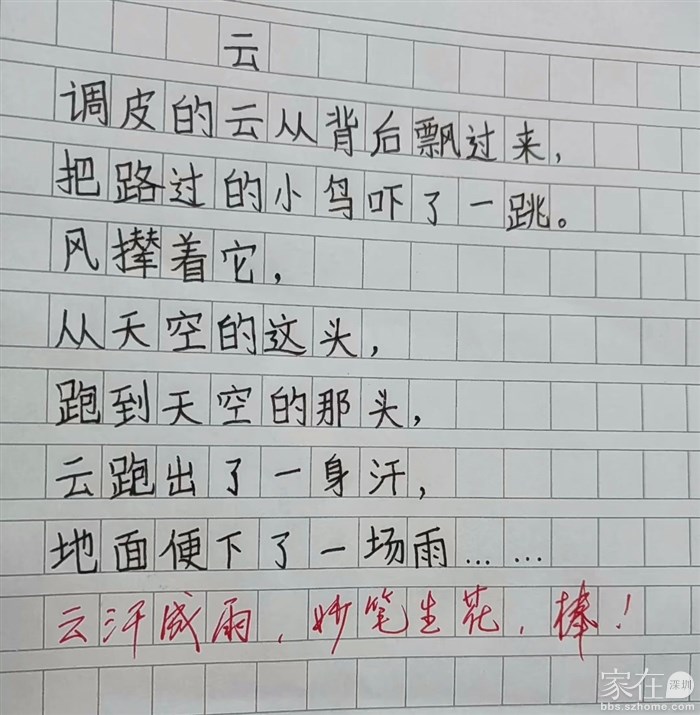 云
调皮的云从背后飘过来，
把路过的小鸟吓了一跳。
风撵着它，
从天空的这头，
跑到天空的那头，
云跑出了一身汗，
地面便下了一场雨……
云汗成雨，妙笔生花，棒！
家在深圳
bbs.szhome.com